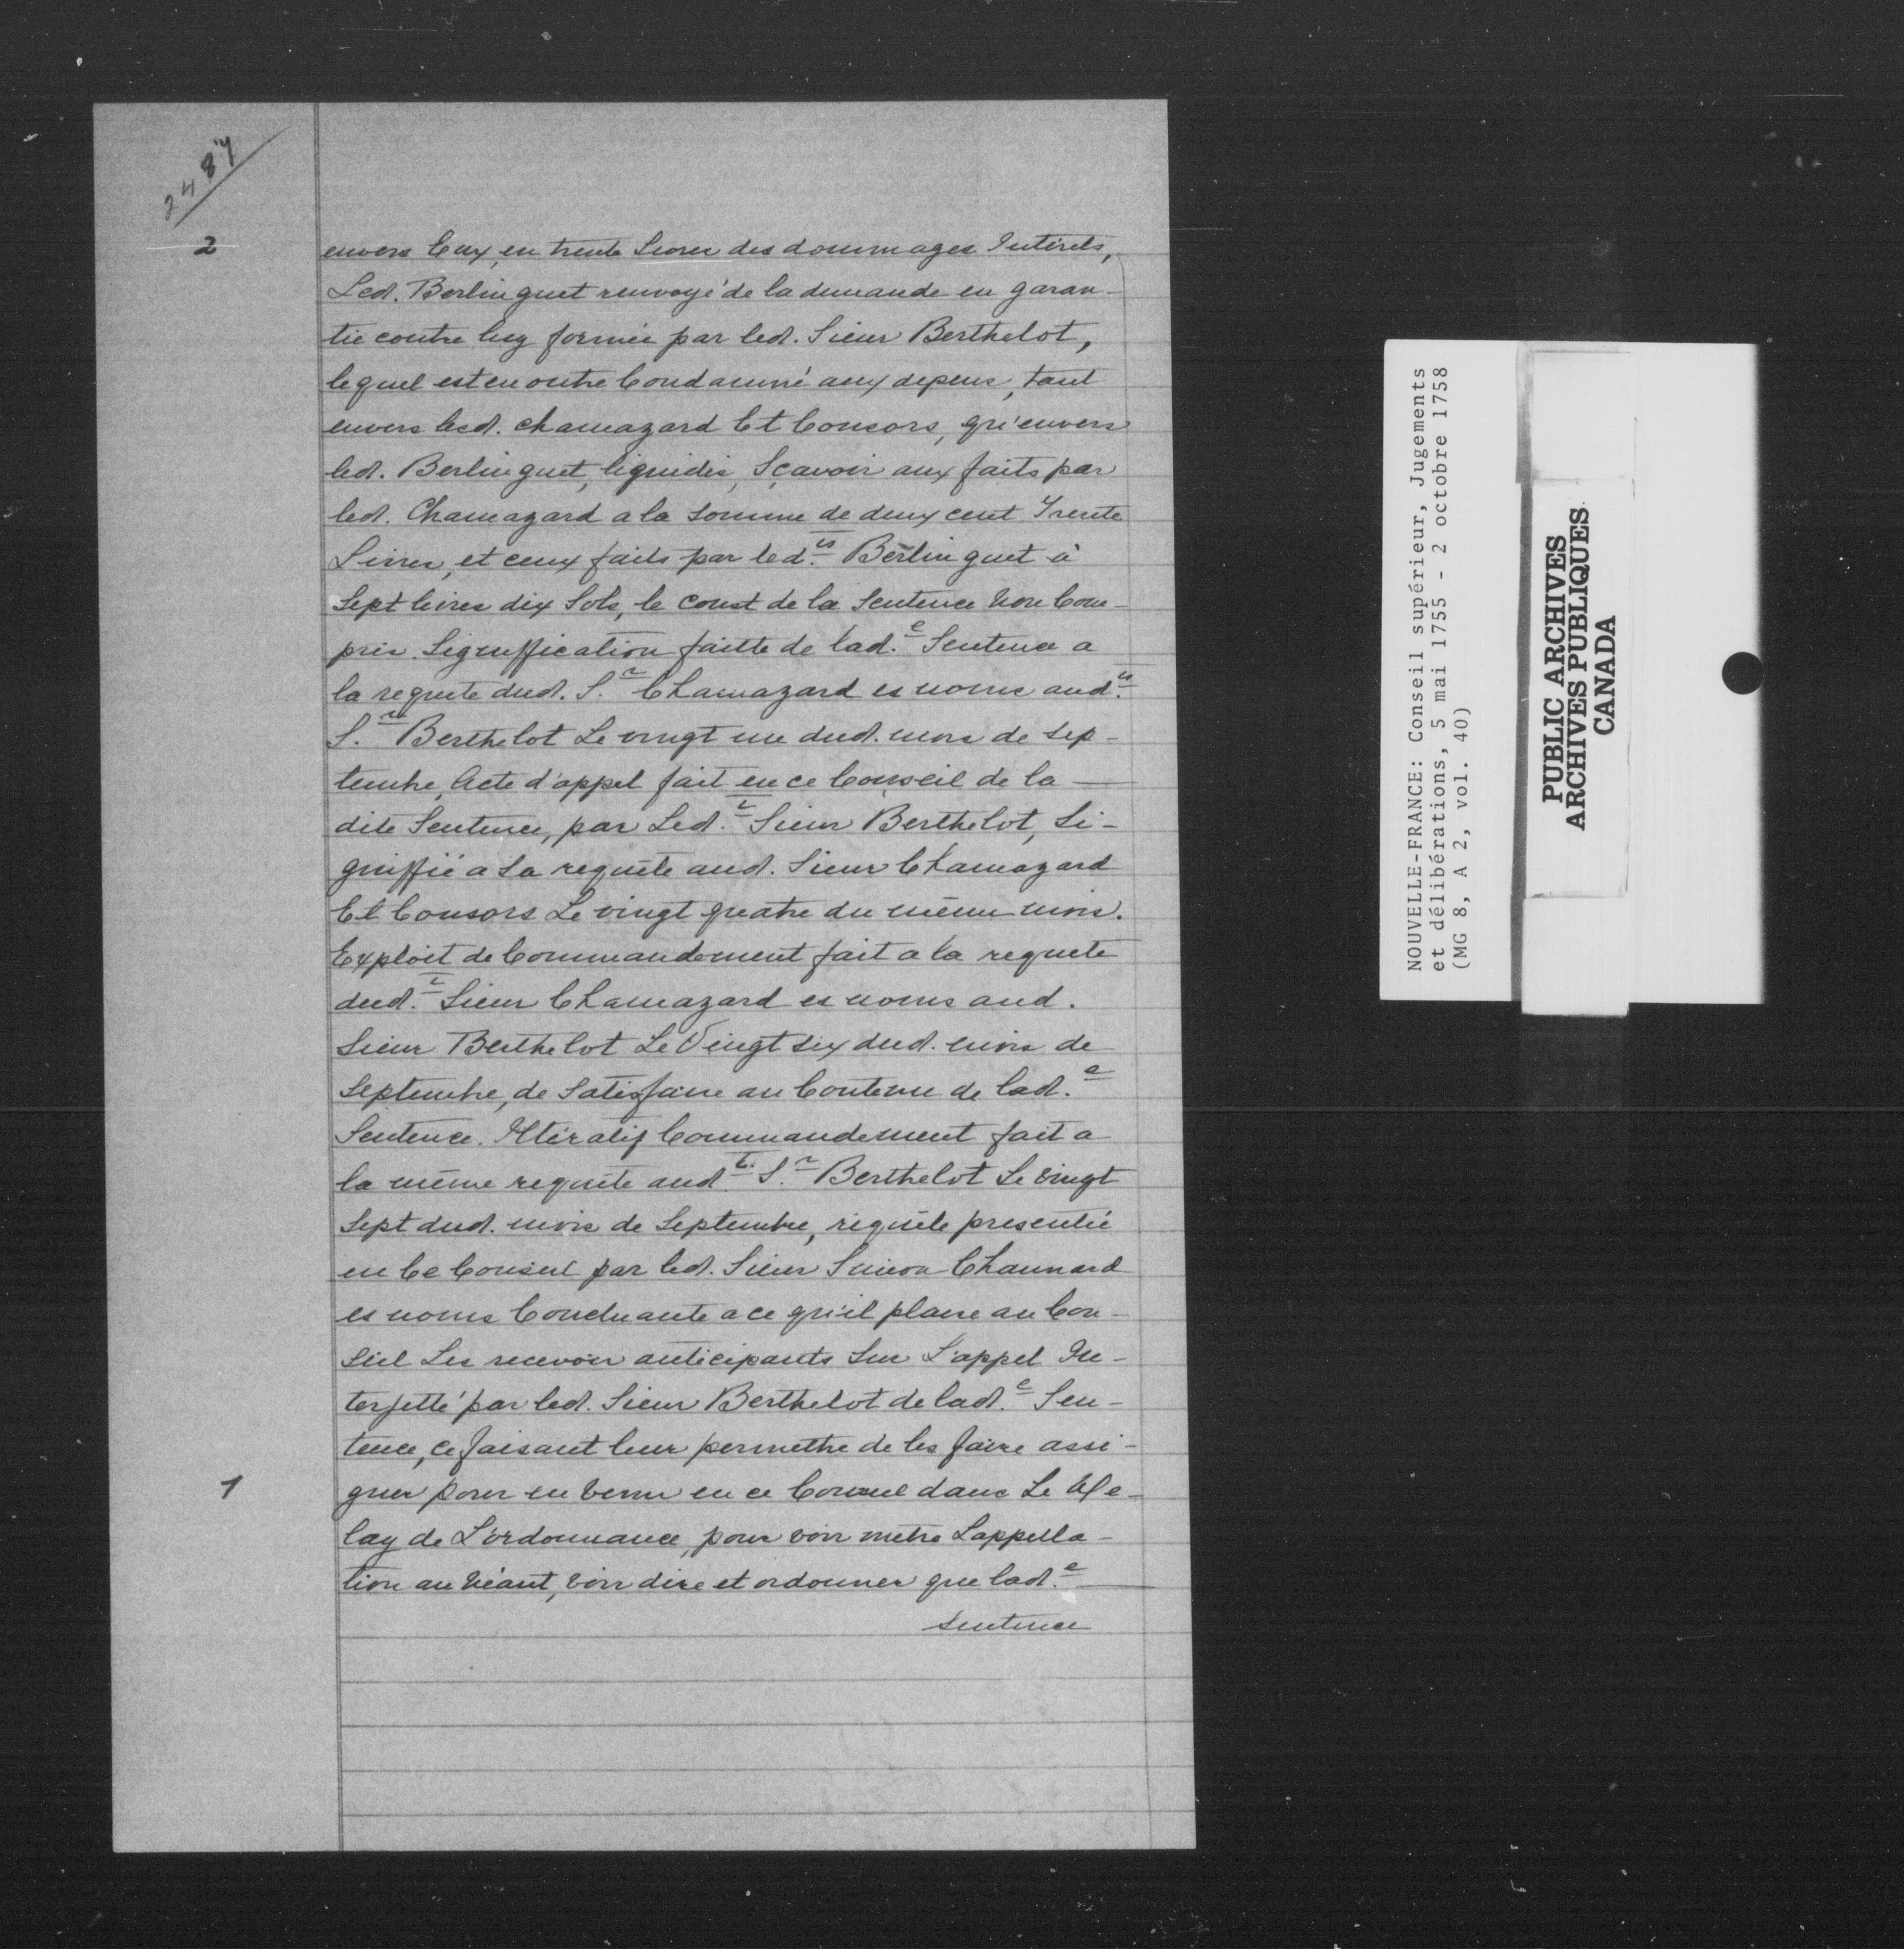 2487
2
envers Eux, en trente Livres des dommages Interets,
Led. Berlinguet renvoyé de la demande en garan-
tie contre luy formée par led. Sieur Berthelot,
lequel est en outre Condamné aux depens, tant
envers lesd. Chamazard Et Consors, qu'envers
led. Berlinguet, liquidés, Sçavoir aux faits par
led. Chamazard a la somme de deux cent Trente
Livres, et ceux faits par led. Berlinguet à
Sept livres dix Sols, le Coust de la Sentence Non Com-
pris. Signiffication faitte de lad.e Sentence a
la requete dud. S.r Chamazard es noms aud.
S.r Berthelot Le vingt un dud. mois de Sep-
tembre, Acte d'appel fait en ce Conseil de la
dite Sentence, par Led.t Sieur Berthelot, Si-
gniffié a Sa requête aud. Sieur Chamazard
Et Consors Le vingt quatre du même mois.
Exploit de Commandement fait a la requete
dud.t Sieur Chamazard es noms aud.
Sieur Berthelot Le Vingt six dud. mois de
Septembre, de Satisfaire au Contenu de lad.e
Sentence. Itératif Commandement fait a
la même requête aud.t S.r Berthelot Le vingt
Sept dud. mois de Septembre, requête presentée
en Ce Conseil par led. Sieur Simon Chaumard
es noms Concluante a ce qu'il plaise au Con-
seil Les recevoir anticipants Sur L'appel In-
terjetté par led. Sieur Berthelot de lad.e Sen-
tence, ce faisant leur permettre de les faire assi-
1
gner pour en venir en ce Conseil dans Le de-
lay de L'ordonnance, pour voir mettre Lappella-
tion au Néant, voir dire et ordonner que lad.e
Sentence
NOUVELLE-FRANCE: Conseil supérieur, Jugements
et délibérations, 5 mai 1755 - 2 octobre 1758
(MG 8, A 2, vol. 40)
PUBLIC ARCHIVES
ARCHIVES PUBLIQUES
CANADA